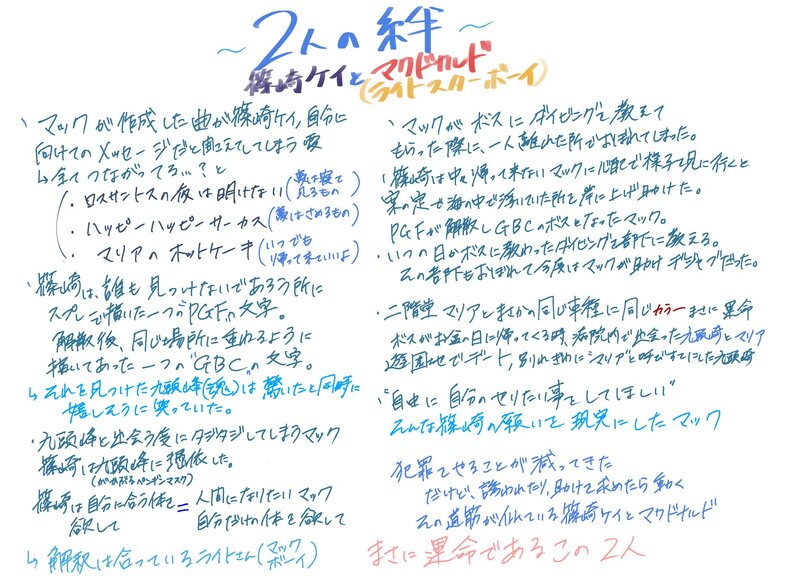 ～2人の絆～
篠崎ケイとマクドナルド
(ライトスターボーイ)
、マックが作成した曲が篠崎ケイ,自分に
向けてのメッセージだと聞えてしまう愛
↳全てつながってる…?と
・ロスサントスの夜は明けない(夢は寝て見るもの)
・ハッピーハッピーサーカス(夢はさめるもの)
・マリアのホットケーキ(いつでも帰って来ていいよ)
・篠崎は、誰も見つけないであろう所に
スプレーで描いた一つの"PGF"の文字。
解散後、同じ場所に重ねるように
描いてあった一つの"GBC"の文字。
↳それを見つけた九頭峰(魂)は驚いたと同時に
嬉しそうに笑っていた。
・九頭峰と出会う度にタジタジしてしまうマック
篠崎は九頭峰に憑依した。
(がやがぶるペンギンマスク)
篠崎は自分に合う体を欲して = 人間になりたいマック 自分だけの体を欲して
↳解釈は合っているライトさん(マックボーイ)
、マックがボスにダイビングを教えて
もらった際に、一人離れた所でおぼれてしまった。
、篠崎は中々帰って来ないマックに心配で様子を見に行くと
案の定で海の中で浮いていた所を岸に上げ助けた。
PGFが解散しGBCのボスとなったマック。
・いつの日かボスに教わったダイビングを部下に教える。
その部下もおぼれて今度はマックが助けデジャブだった。
・二階堂マリアとまさかの同じ車種に同じカラーまさに運命
ボスがお金の日に帰ってくる時、病院内で出会った九頭崎とマリア
遊園地でデート,別れぎわに"マリア"と呼びすてにした九頭崎
"自由に自分のやりたい事をしてほしい"
そんな篠崎の願いを現実にしたマック
犯罪でやることが減ってきた
だけど、誘われたり,助けを求めたら動く
その道筋が似ている篠崎ケイとマクドナルド
まさに運命であるこの2人